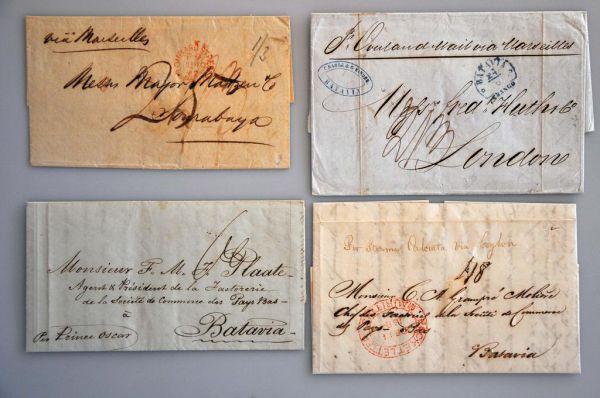 via Marseilles
1/3
Messrs Major
Sourabaya
Pr. Overland Mail via Marseilles
BATAVIA
BATAVIA
FRANCO
Messrs Fredk Huth & Co
London
Monsieur F. M. J. Plaate
Agent & Président de la Factorerie
de la Société de Commerce des Pays Bas
à
Batavia
Per Prince Oscar
Per Steamer Calcutta via Ceylon
Monsieur C. A Grampré Molière
de la Société de Commerce
des Pays-Bas
Batavia